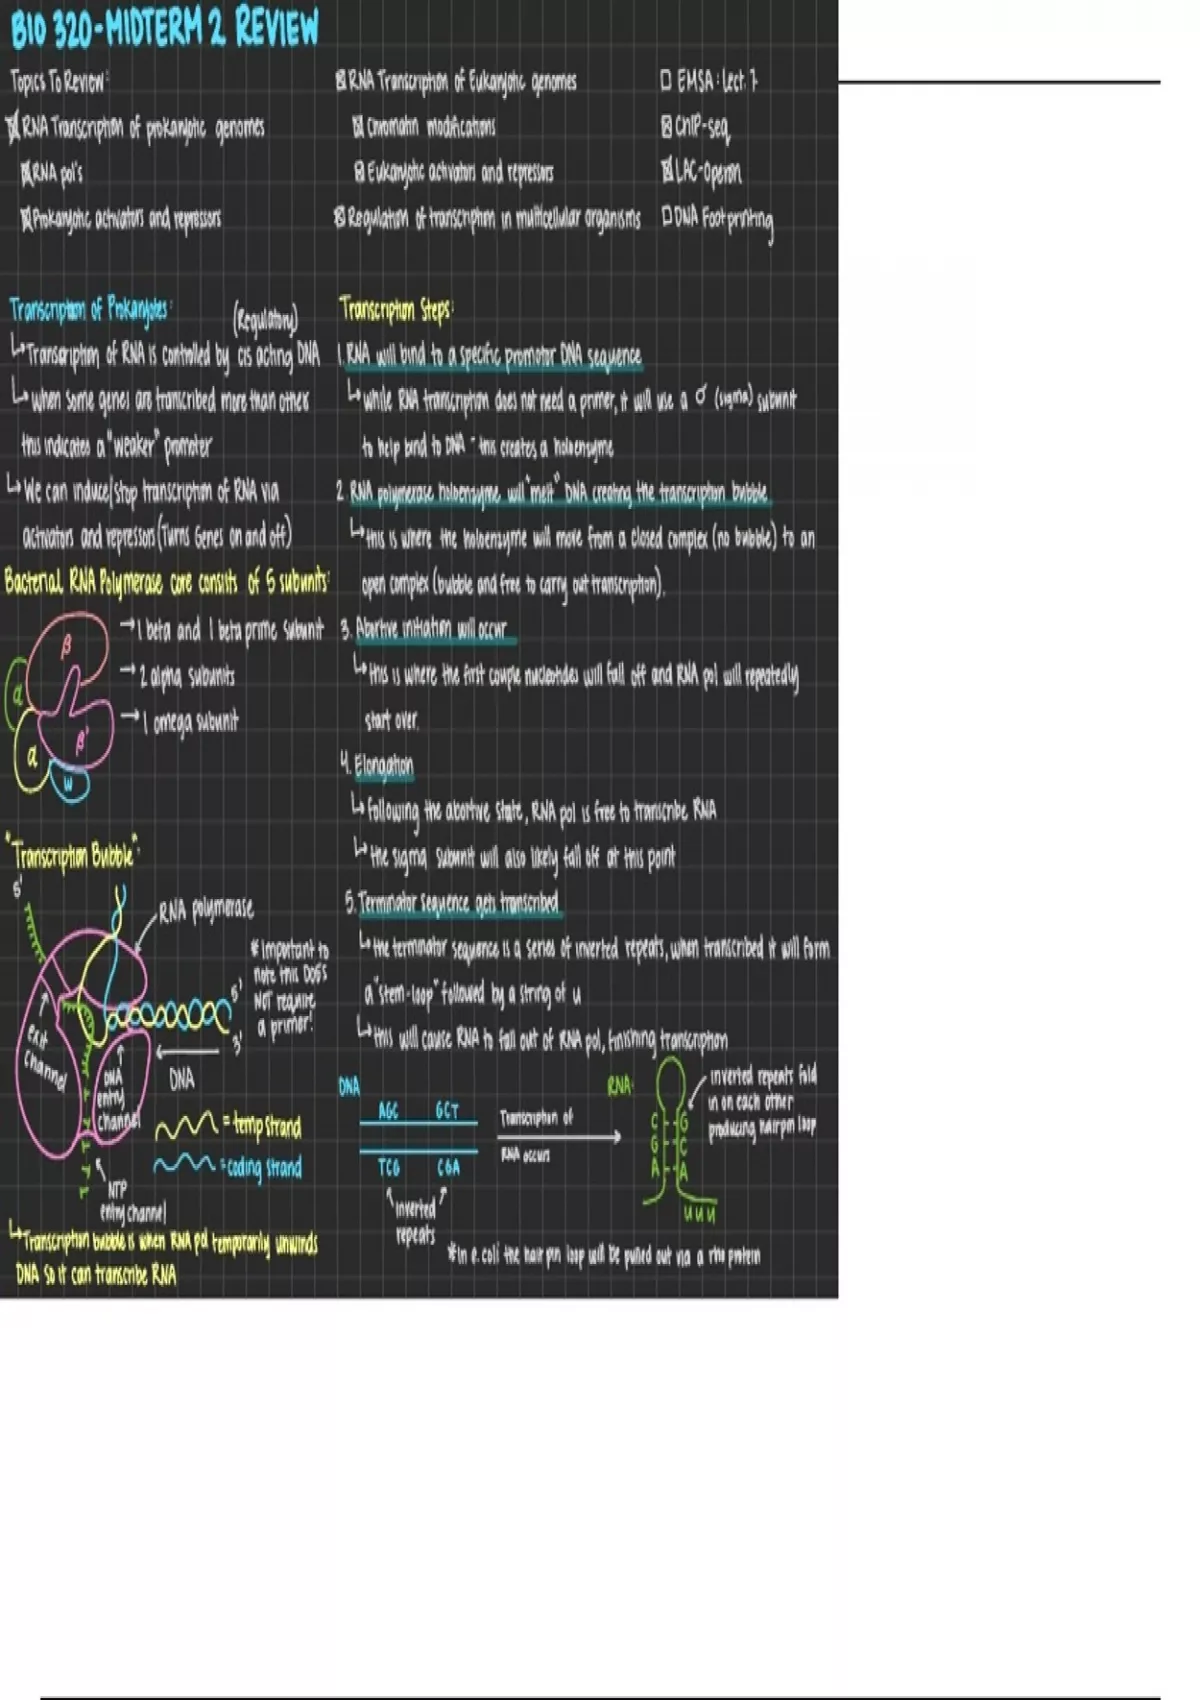 BIO 320-MIDTERM 2 REVIEW
Topics To Review:
RNA Transcription of prokaryotic genomes
RNA pol's
Prokaryotic activators and repressors
RNA Transcription of Eukaryotic genomes
Chromatin modifications
Eukaryotic activators and repressors
Regulation of transcription in multicellular organisms
EMSA: Lect. 7
ChIP-seq
LAC-Operon
DNA Footprinting
Transcription of Prokaryotes:
(Regulatory)
↳Transcription of RNA is controlled by cis acting DNA
↳when some genes are transcribed more than other
this indicates a "weaker" promoter
↳We can induce/stop transcription of RNA via
activators and repressors (Turns Genes on and off)
Bacterial RNA Polymerase core consists of 5 subunits:
→1 beta and 1 beta prime subunit
→2 alpha subunits
→1 omega subunit
β
α
α
β'
w
"Transcription Bubble":
5'
RNA polymerase
*important to
note this DOES
NOT require
a primer!
5'
3'
exit
channel
DNA
entry
channel
DNA
= temp strand
= coding strand
NTP
entry channel
↳Transcription bubble is when RNA pol temporarily unwinds
DNA so it can transcribe RNA
Transcription Steps:
1. RNA will bind to a specific promotor DNA sequence
↳while RNA transcription does not need a primer, it will use a σ (sigma) subunit
to help bind to DNA - this creates a holoenzyme
2. RNA polymerase holoenzyme will "melt" DNA creating the transcription bubble
↳this is where the holoenzyme will move from a closed complex (no bubble) to an
open complex (bubble and free to carry out transcription).
3. Abortive initiation will occur
↳this is where the first couple nucleotides will fall off and RNA pol will repeatedly
start over.
4. Elongation
↳following the abortive state, RNA pol is free to transcribe RNA
↳the sigma subunit will also likely fall off at this point
5. Terminator sequence gets transcribed
↳the terminator sequence is a series of inverted repeats, when transcribed it will form
a "stem-loop" followed by a string of u
↳this will cause RNA to fall out of RNA pol, finishing transcription
DNA
AGC GCT
TCG CGA
inverted
repeats
Transcription of
RNA occurs
RNA:
C G
G C
A A
UUU
inverted repeats fold
in on each other
producing hairpin loop
*in e.coli the hair pin loop will be pulled out via a rho protein